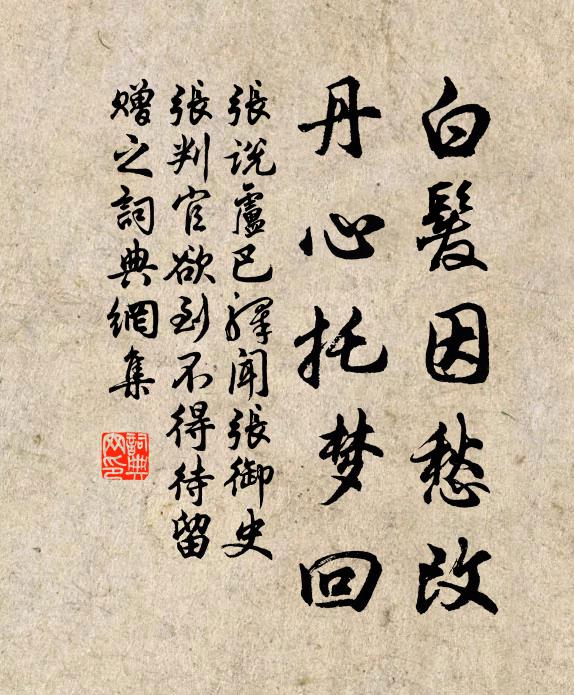 白髮因愁改
丹心托梦回
張說盧巴驛聞張御史
張判官欲到不得待留
贈之詞典網集
詞典
网印